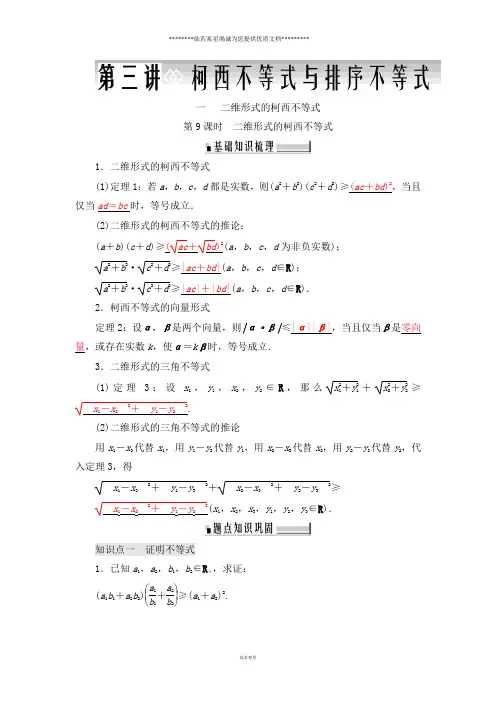 ********灿若寒星竭诚为您提供优质文档*********
第三讲 柯西不等式与排序不等式
一 二维形式的柯西不等式
第9课时 二维形式的柯西不等式
基础知识梳理
1．二维形式的柯西不等式
(1)定理1：若a，b，c，d都是实数，则(a²＋b²)(c²＋d²)≥(ac＋bd)²，当且
仅当ad＝bc时，等号成立．
(2)二维形式的柯西不等式的推论：
(a＋b)(c＋d)≥(√ac＋√bd)²(a，b，c，d为非负实数)；
√a²＋b²·√c²＋d²≥|ac＋bd|(a，b，c，d∈R)；
√a²＋b²·√c²＋d²≥|ac|＋|bd|(a，b，c，d∈R)．
2．柯西不等式的向量形式
定理2：设α，β是两个向量，则|α·β|≤|α||β|，当且仅当β是零向
量，或存在实数k，使α＝kβ时，等号成立．
3．二维形式的三角不等式
(1)定理3：设x₁，y₁，x₂，y₂∈R，那么√x₁²＋y₁²＋√x₂²＋y₂²≥
√x₁－x₂ ²＋ y₁－y₂ ².
(2)二维形式的三角不等式的推论
用x₁－x₃代替x₁，用y₁－y₃代替y₁，用x₂－x₃代替x₂，用y₂－y₃代替y₂，代
入定理3，得
√x₁－x₃ ²＋ y₁－y₃ ²＋√x₂－x₃ ²＋ y₂－y₃ ²≥
√x₁－x₂ ²＋ y₁－y₂ ²(x₁，x₂，x₃，y₁，y₂，y₃∈R)．
题点知识巩固
知识点一 证明不等式
1．已知a₁，a₂，b₁，b₂∈R₊，求证：
(a₁b₁＋a₂b₂)(a₁/b₁＋a₂/b₂)≥(a₁＋a₂)².
灿若寒星